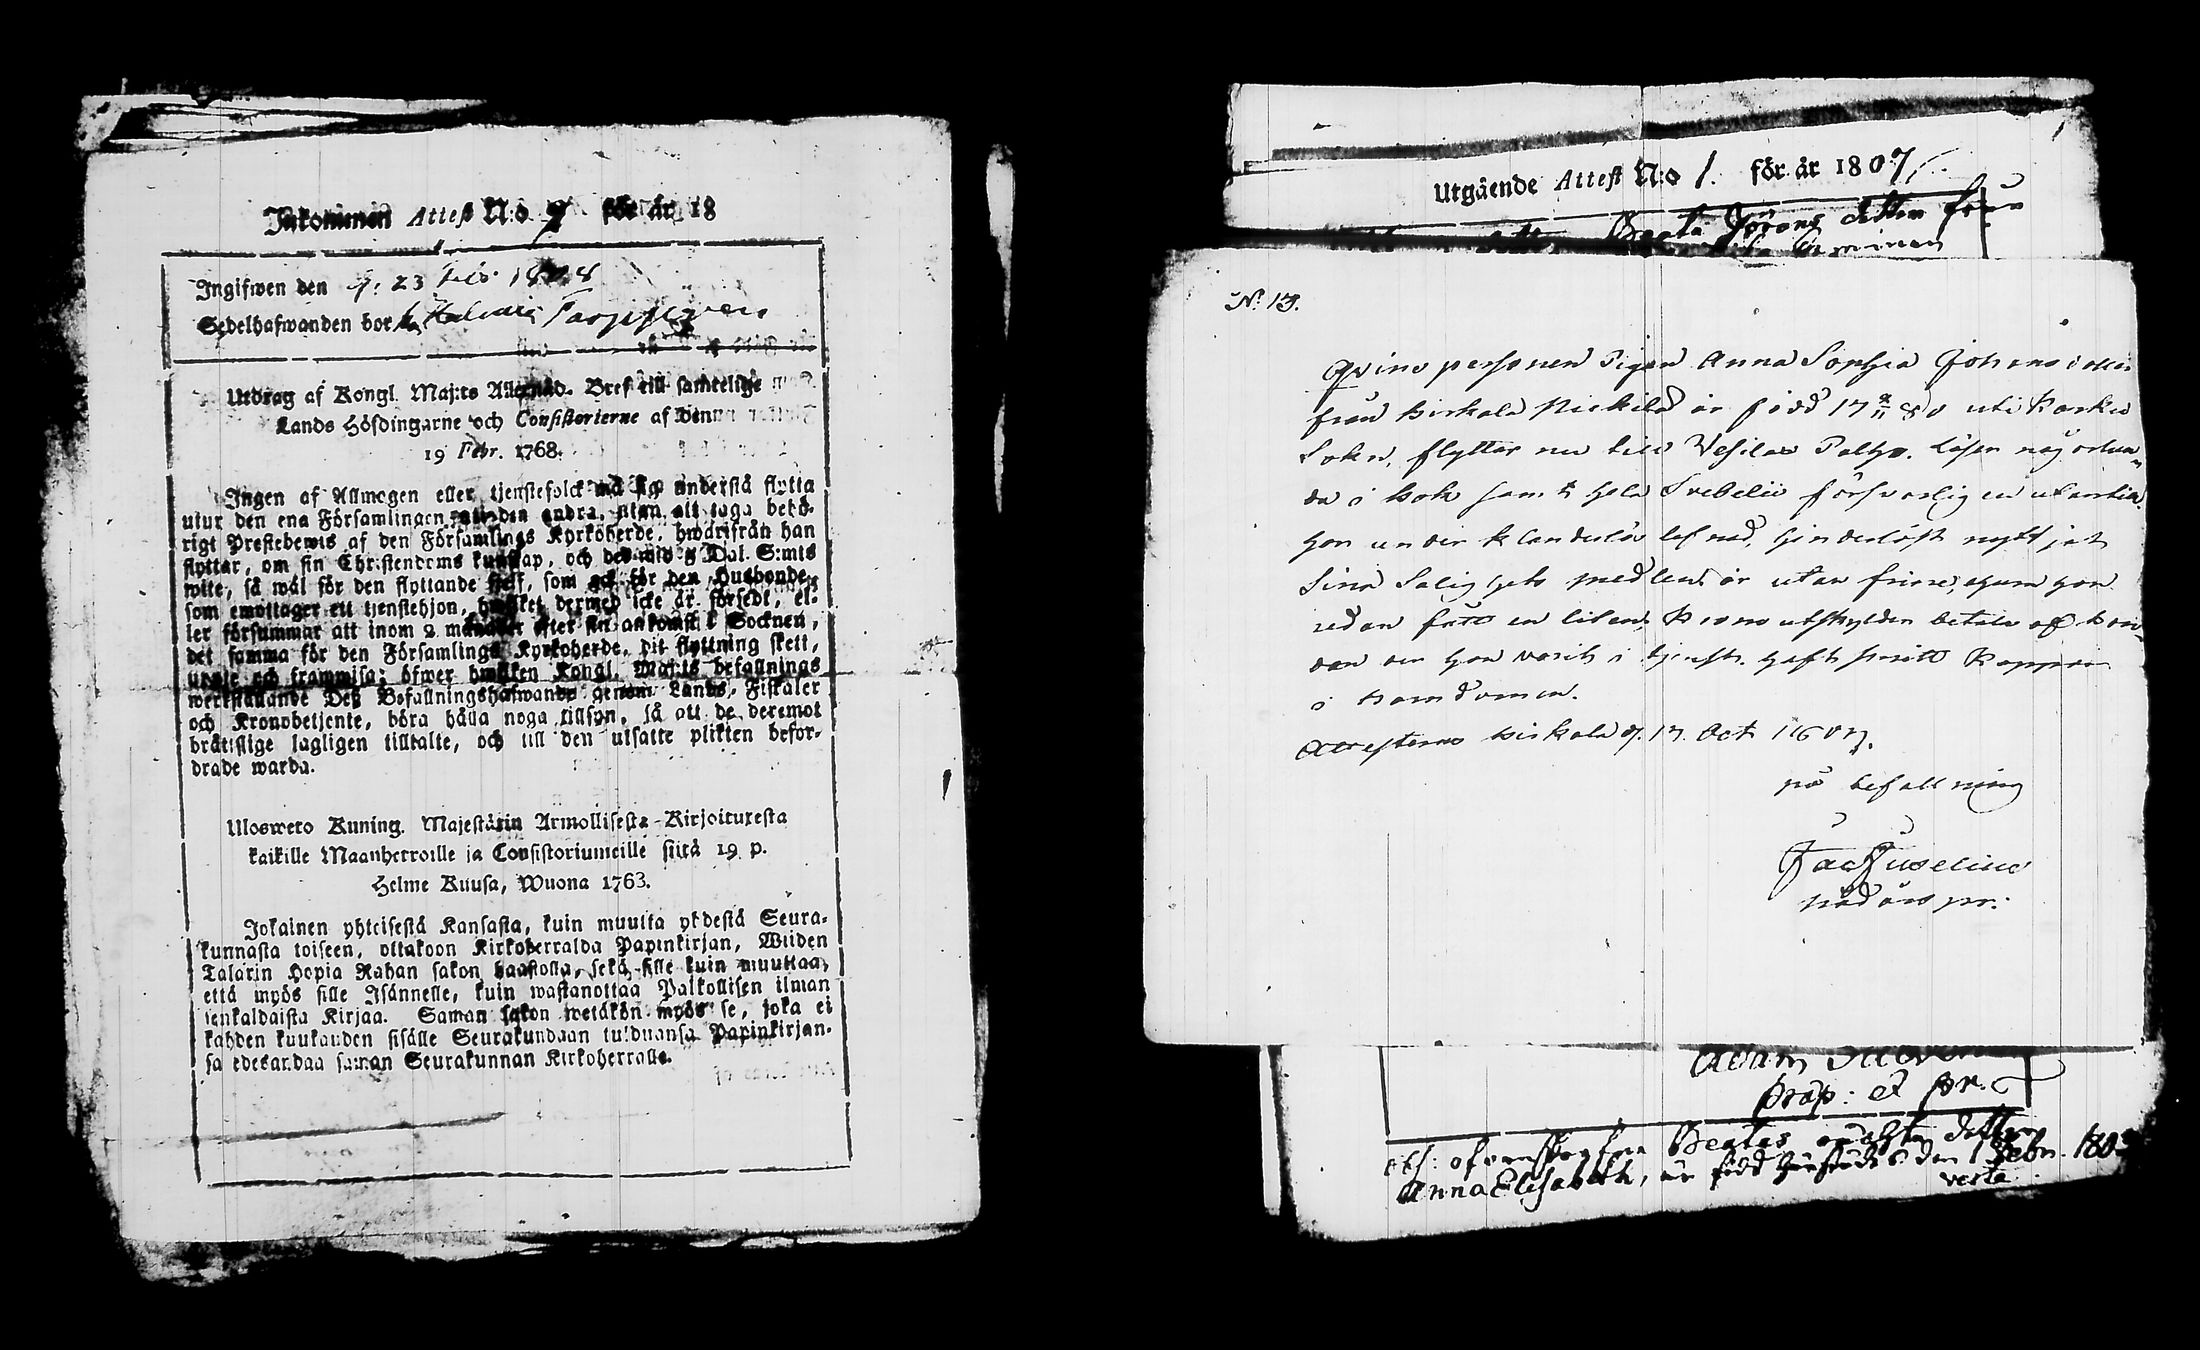 Inkommen Attest N:o 9 för år 18
Ingifwen den d. 23 1808
Sedelhafwanden bor
Utdrag af Kongl. Maj:ts Allernåd. Bref till samtelige
Lands Höfdingarne och Consistorierne af den
19 Febr. 1768.
Ingen af Allmogen eller tjenstefolck må sig understå flytta
utur den ena Församlingen til den andra, utan att taga behö-
rigt Prestebewis af den Församlings Kyrkoherde, hwarifrån han
flyttar, om sin Christendoms kunskap, och det wid 5 Dal. S:mts
wite, så wäl för den flyttande sjelf, som ock för den Husbonde,
som emottager ett tjenstehjon, hwilket dermed icke är försedt, el-
ler försummar att inom 2 månader efter sin ankomst i Socknen,
det samma för den Församlings Kyrkoherde, dit flyttning skett,
upte och framwisa; öfwer hwilken Kongl. Maj:ts befallnings
werkställande Deß Befallningshafwande genom Lands-Fiskaler
och Kronobetjente, böra hålla noga tillsyn, så att de deremot
brätslige lagligen tilltalte, och till den utsatte plikten befor-
drade warda.
Ulosweto Kuning. Majestätin Armollisesta Kirjoituxesta
kaikille Maanherroille ja Consistoriumeille siitä 19 p.
Helme Kuusa, Wuona 1763.
Jokainen yhteisestä Kansasta, kuin muutta yhdestä Seura-
kunnasta toiseen, ottakoon Kirkoherralda Papinkirjan, Wiiden
Talarin Hopia Rahan sakon haastolla, sekä sille kuin muuttaa,
että myös sille Isännelle, kuin wastanottaa Palkollisen ilman
senkaldaista Kirjaa. Saman sakon wetäkön myös se, joka ei
kahden kuukauden sisälle Seurakundaan tulduansa Papinkirjan-
sa edesandaa saman Seurakunnan Kirkoherralle.
Utgående Attest N:o 1. för år 1807.
Beata Görans dotter från
N:o 13.
Qvins personen Pigan Anna Sophia Johans dotter
från Kirkala är född 17 8/11 80 uti Karku
Sokn, flyttar nu till Vesilax Paltzo. Läser någorlun-
da i bok samt hela Svebelii försvarlig en utantia.
Hon under klanderlös lefnad, hinderlöst nyttjat
Sina Salighets medlen, är utan frierei, ehuru hon
redan fått en liten, Krono utskylder betalt af bon-
den der hon varit i tjenst. Haft Koppor
i barndomen.
Attesteras Kirkala d. 17. Oct 1807.
på befallning
Jac Juselius
nådårs pr.
Adam
Præp: et pr.
obs: ofvanskrefne Beatas oächta dotter
Anna Elisabeth, är född härstädes den 1 Febr. 1803
verte